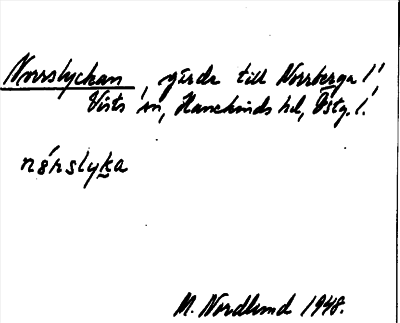 Norrslyckan, gärde till Norrberga l!
Vists sn, Hanekinds hd, Östg. l.
nȯrslyka
M. Nordlund 1948.